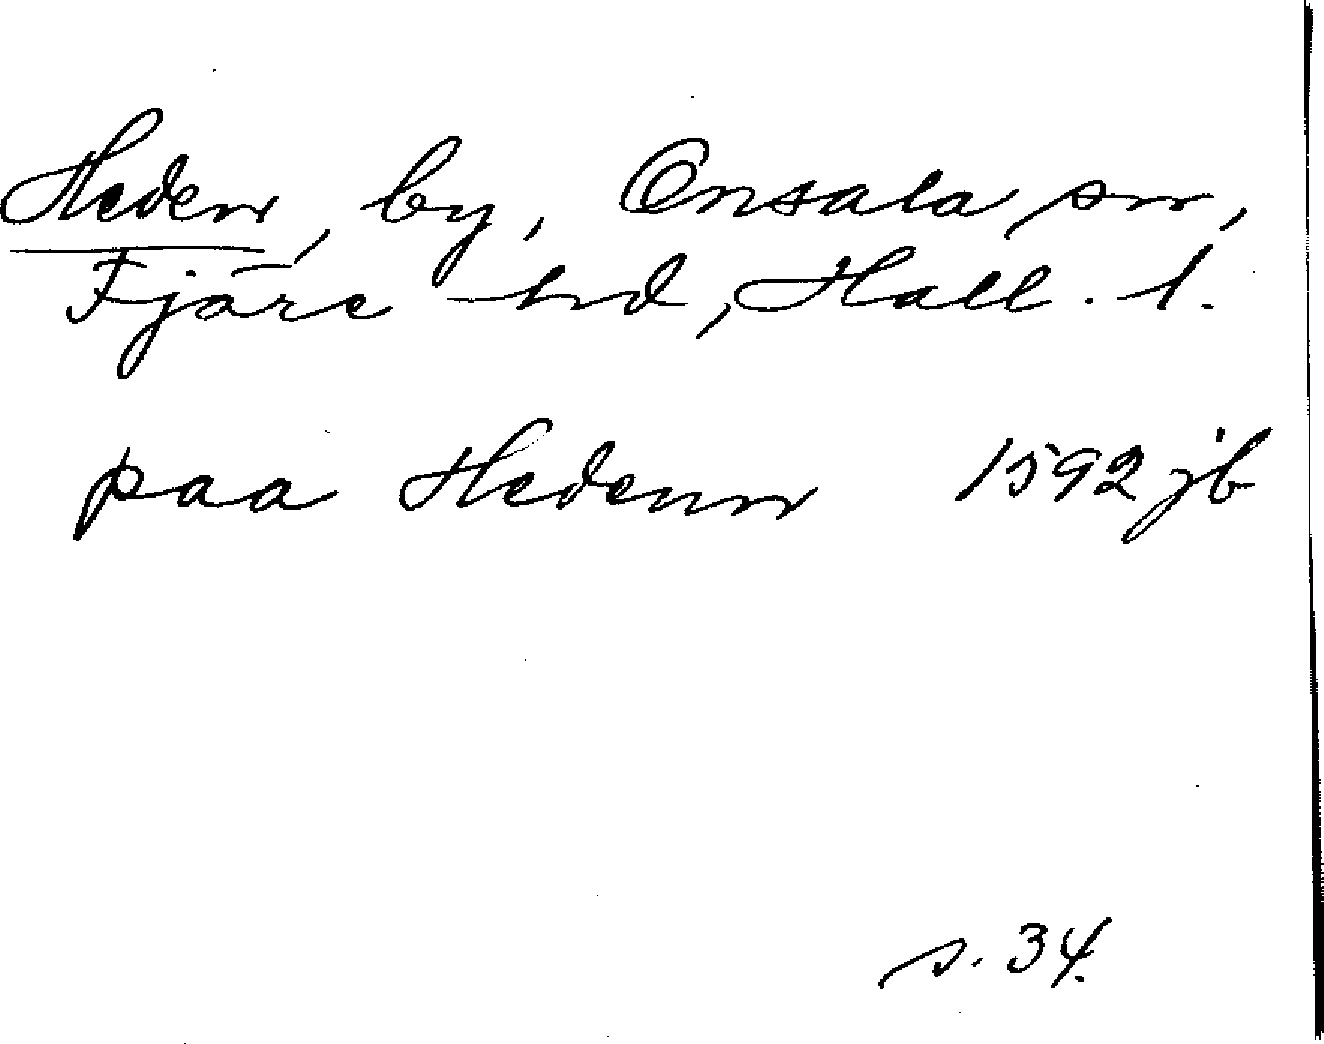 Heden, by, Onsala sn,
Fjäre hd, Hall. l.
paa Hedenn 1592 jb
s. 34.